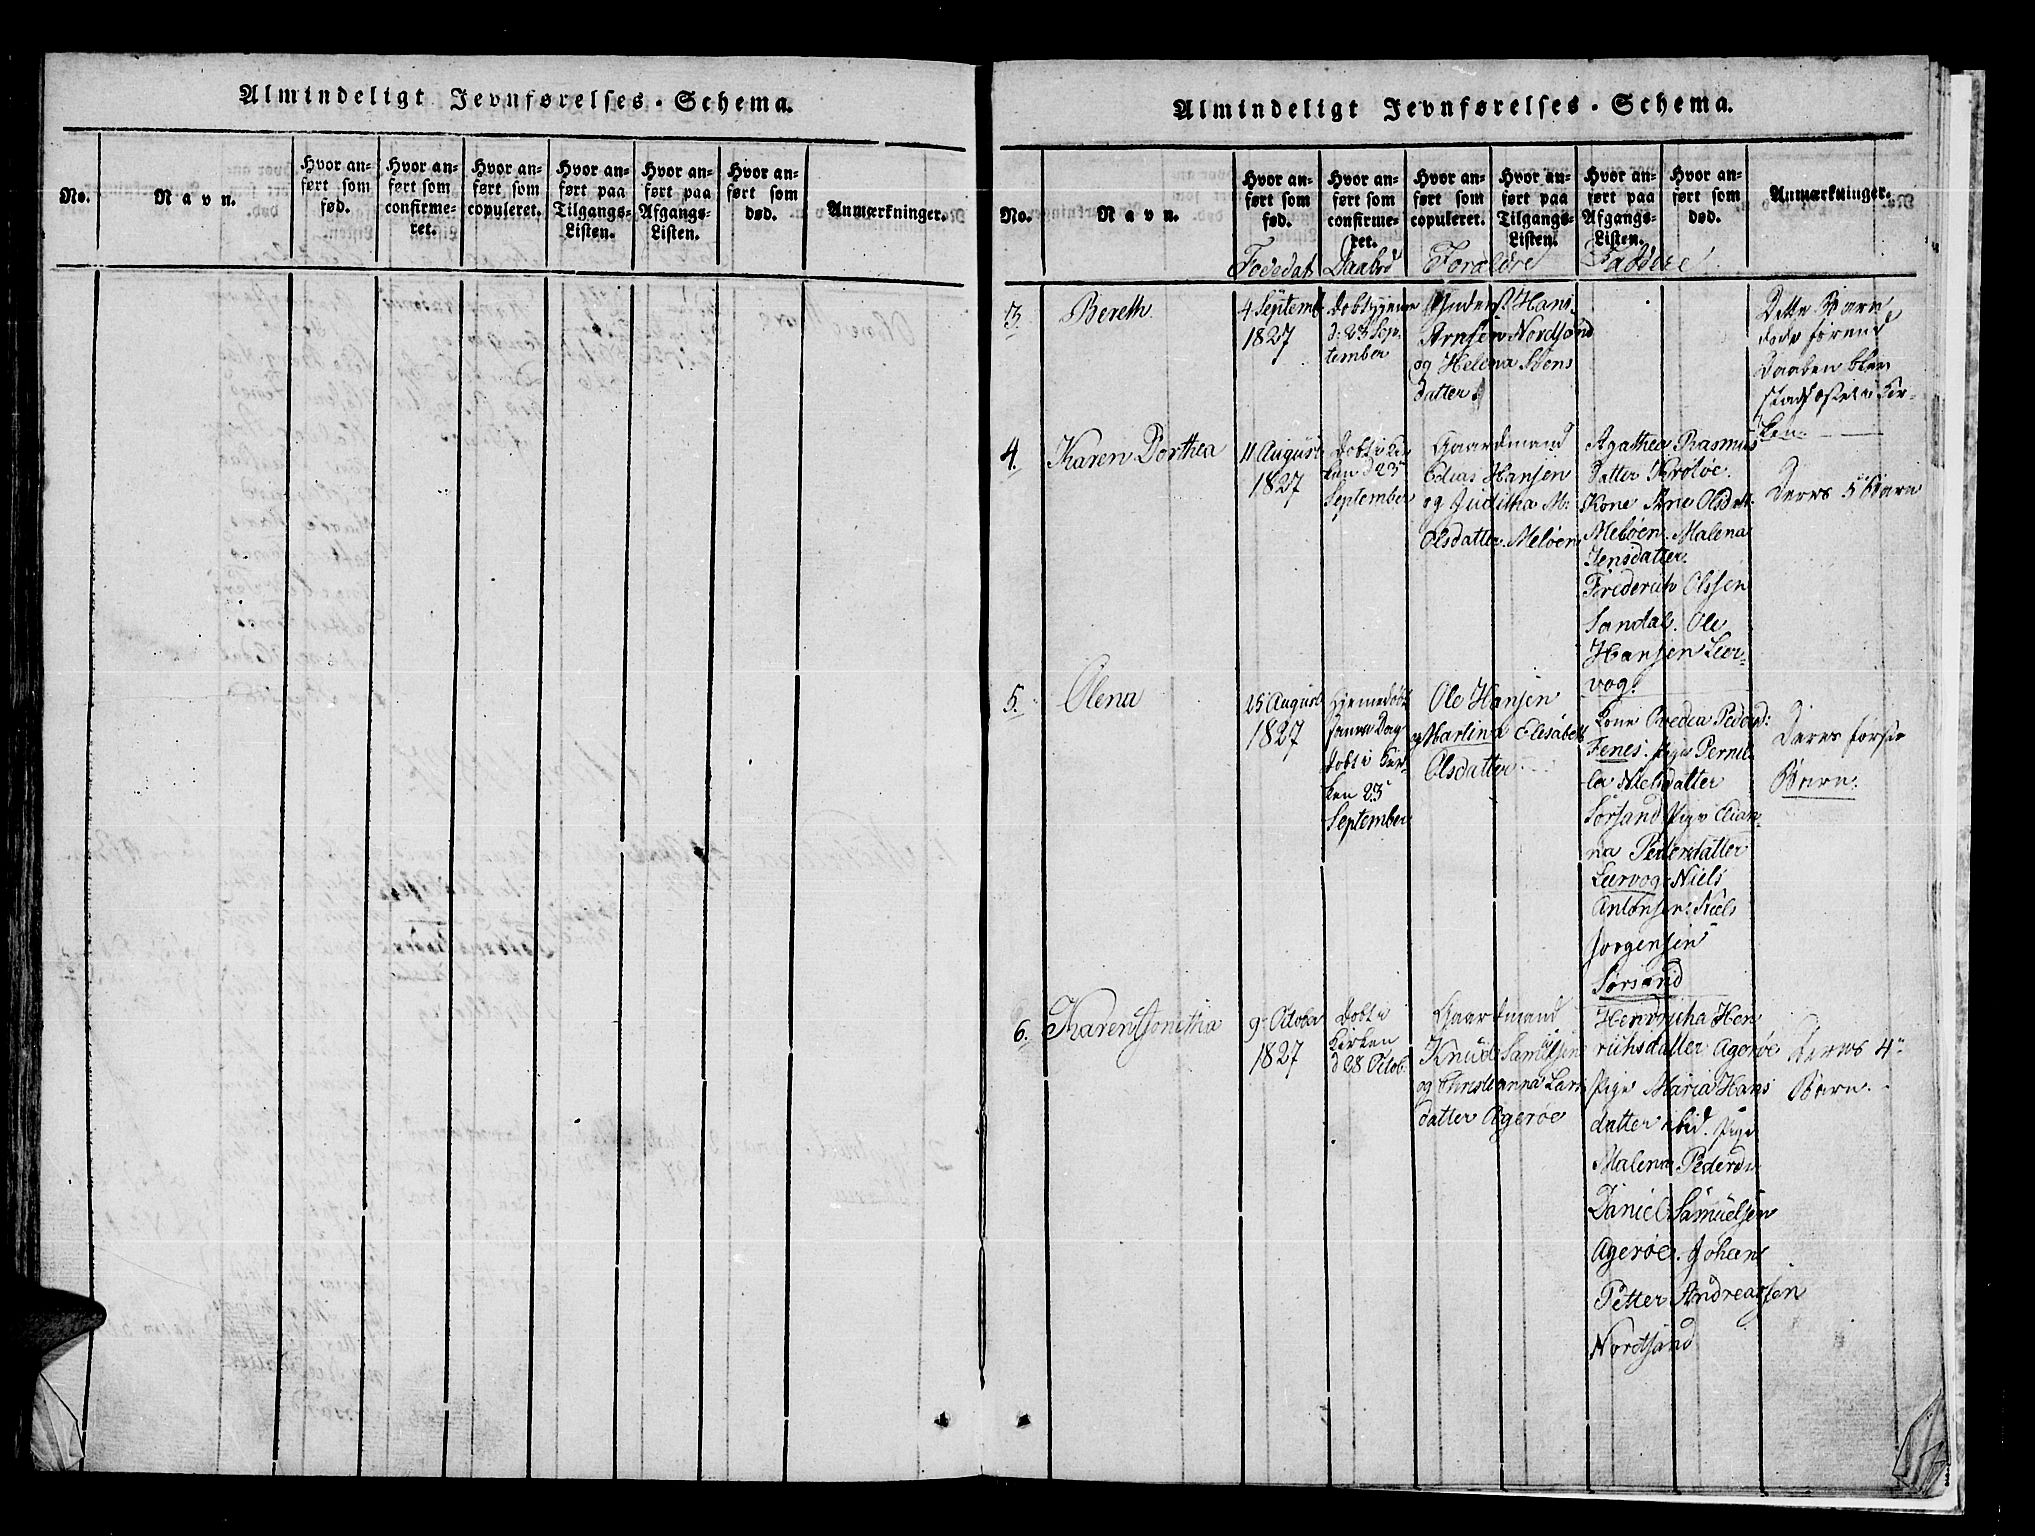 Almindeligt Jevnførelses-Schema.
No.
Navn.
Hvor an-
ført som
fød.
Hvor an-
ført som
confirme-
ret.
Hvor an-
ført som
copuleret.
Hvor an-
ført paa
Tilgangs-
Listen.
Hvor an-
ført paa
Afgangs-
Listen.
Hvor an-
ført som
død.
Anmærkninger.
Almindeligt Jevnførelses-Schema.
No.
Navn.
Hvor an-
ført som
fød.
Hvor an-
ført som
confirme-
ret.
Hvor an-
ført som
copuleret.
Hvor an-
ført paa
Tilgangs-
Listen.
Hvor an-
ført paa
Afgangs-
Listen.
Hvor an-
ført som
død.
Anmærkninger.
Fødedat Daabsd Forældre Faddere
3.
Bereth
4 Septemb
1827
d: 23 Sep-
tember
Hans
Arnsen Nordsand
og Helena Stens
datter.
Dette Barn
døde førend
Daaben blev
Kir-
ken.
4.
Karen Dorthea
11 August
1827
Døbt i Kir
ken d 23
September
Gaardmand
Elias Hansen
og Juditha M:
Olsdatter Meløen
Agathea Rasmus
Datter
Kone Ane Olsdatt.
Meløen. Malena
Jensdatter.
Frederich Olssen
Sandal. Ole
Hansen Leer-
vog.
Deres 5 Barn
5.
Olena
25 August
1827
Hjemedøbt
samme Dag
døbt i Kir-
ken 23
September
Ole Hansen
og Martina Elesabeth
Olsdatter
Kone Pedersd:
Fenes. Pige Pernil-
la Nielsdatter
Sørsand Pige Elian-
na Pedersdatter
Leervog. Niels
Antonsen. Niels
Jørgensen
Sørsand
Deres første
Barn.
6.
Karen Jonitha
9 Octobr
1827
Døbt i
Kirken
d 28 Octob.
Gaardmand
Knud Samuelsen
og Christianna Lars
datter Agerøe
Henricha Hen
richsdatter Agerøe
Pige Maria Hans
datter ibid. Pige
Malena Pedersd.
Daniel Samuelsen
Agerøe. Johan
Petter Andreassen
Nordsand
Deres 4
Barn.